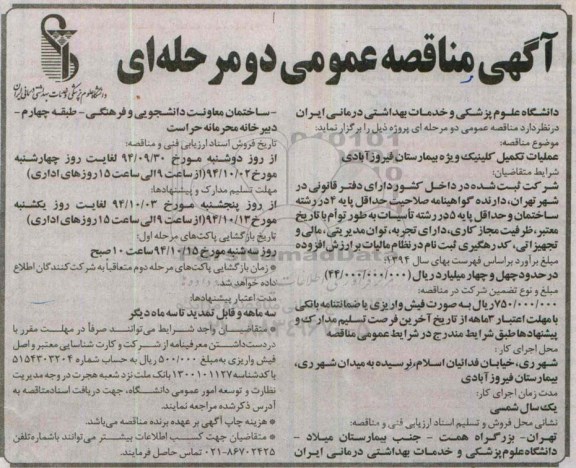 آگهی مناقصه عمومی دو مرحله‌ای
دانشگاه علوم پزشکی و خدمات بهداشتی درمانی ایران
دانشگاه علوم پزشکی و خدمات بهداشتی درمانی ایران
در نظر دارد مناقصه عمومی دو مرحله ای پروژه ذیل را برگزار نماید:
موضوع مناقصه:
عملیات تکمیل کلینیک ویژه بیمارستان فیروزآبادی
شرایط متقاضیان:
شرکت ثبت شده در داخل کشور دارای دفتر قانونی در
شهر تهران، دارنده گواهینامه صلاحیت حداقل پایه ۴ در رشته
ساختمان و حداقل پایه ۵ در رشته تأسیسات به طور توأم با تاریخ
معتبر، ظرفیت مجاز کاری، دارای تجربه، توان مدیریتی، مالی و
تجهیزاتی، کد رهگیری ثبت نام در نظام مالیات بر ارزش افزوده
مبلغ برآورد براساس فهرست بهای سال ۱۳۹۴:
در حدود چهل و چهار میلیارد ریال (۴۴/۰۰۰/۰۰۰/۰۰۰)
مبلغ و نوع تضمین شرکت در مناقصه:
۷۵۰/۰۰۰/۰۰۰ ریال به صورت فیش واریزی یا ضمانتنامه بانکی
با مهلت اعتبار ۳ ماهه از تاریخ آخرین فرصت تسلیم مدارک و
پیشنهادها طبق شرایط مندرج در شرایط عمومی مناقصه
محل اجرای کار:
شهر ری، خیابان فدائیان اسلام، نرسیده به میدان شهر ری،
بیمارستان فیروزآبادی
مدت زمان اجرای کار:
یک سال شمسی
نشانی محل فروش و تسلیم اسناد ارزیابی فنی و مناقصه:
تهران- بزرگراه همت - جنب بیمارستان میلاد -
دانشگاه علوم پزشکی و خدمات بهداشتی درمانی ایران
-ساختمان معاونت دانشجویی و فرهنگی- طبقه چهارم-
دبیرخانه محرمانه حراست
تاریخ فروش اسناد ارزیابی فنی و مناقصه:
از روز دوشنبه مورخ ۹۴/۰۹/۳۰ لغایت روز چهارشنبه
مورخ ۹۴/۱۰/۰۲ (از ساعت ۹ الی ساعت ۱۵ روزهای اداری)
مهلت تسلیم مدارک و پیشنهادها:
از روز پنجشنبه مورخ ۹۴/۱۰/۰۳ لغایت روز یکشنبه
مورخ ۹۴/۱۰/۱۳ (از ساعت ۹ الی ساعت ۱۵ روزهای اداری)
تاریخ بازگشایی پاکت‌های مرحله اول:
روز سه شنبه مورخ ۹۴/۱۰/۱۵ ساعت ۱۰ صبح
* زمان بازگشایی پاکت‌های مرحله دوم متعاقباً به شرکت‌کنندگان اطلاع
داده خواهد شد.
مدت اعتبار پیشنهادها:
سه ماهه و قابل تمدید تا سه ماه دیگر
* متقاضیان واجد شرایط می‌توانند صرفاً در مهلت مقرر با
در دست داشتن معرفینامه از شرکت و کارت شناسایی معتبر و اصل
فیش واریزی به مبلغ ۵۰۰/۰۰۰ ریال به حساب شماره ۵۱۵۴۳۰۳۲۰۴
با کد شناسه ۱۳۰۰۱۰۱۱۲۷ بانک ملت نزد شعبه هجرت در وجه مدیریت
نظارت و توسعه امور عمومی دانشگاه، جهت دریافت اسناد مناقصه به
آدرس ذکر شده مراجعه نمایند.
* هزینه چاپ آگهی بر عهده برنده مناقصه می‌باشد.
* متقاضیان جهت کسب اطلاعات بیشتر می‌توانند با شماره تلفن
۰۲۱-۸۶۷۰۲۴۲۵ تماس حاصل فرمایند.